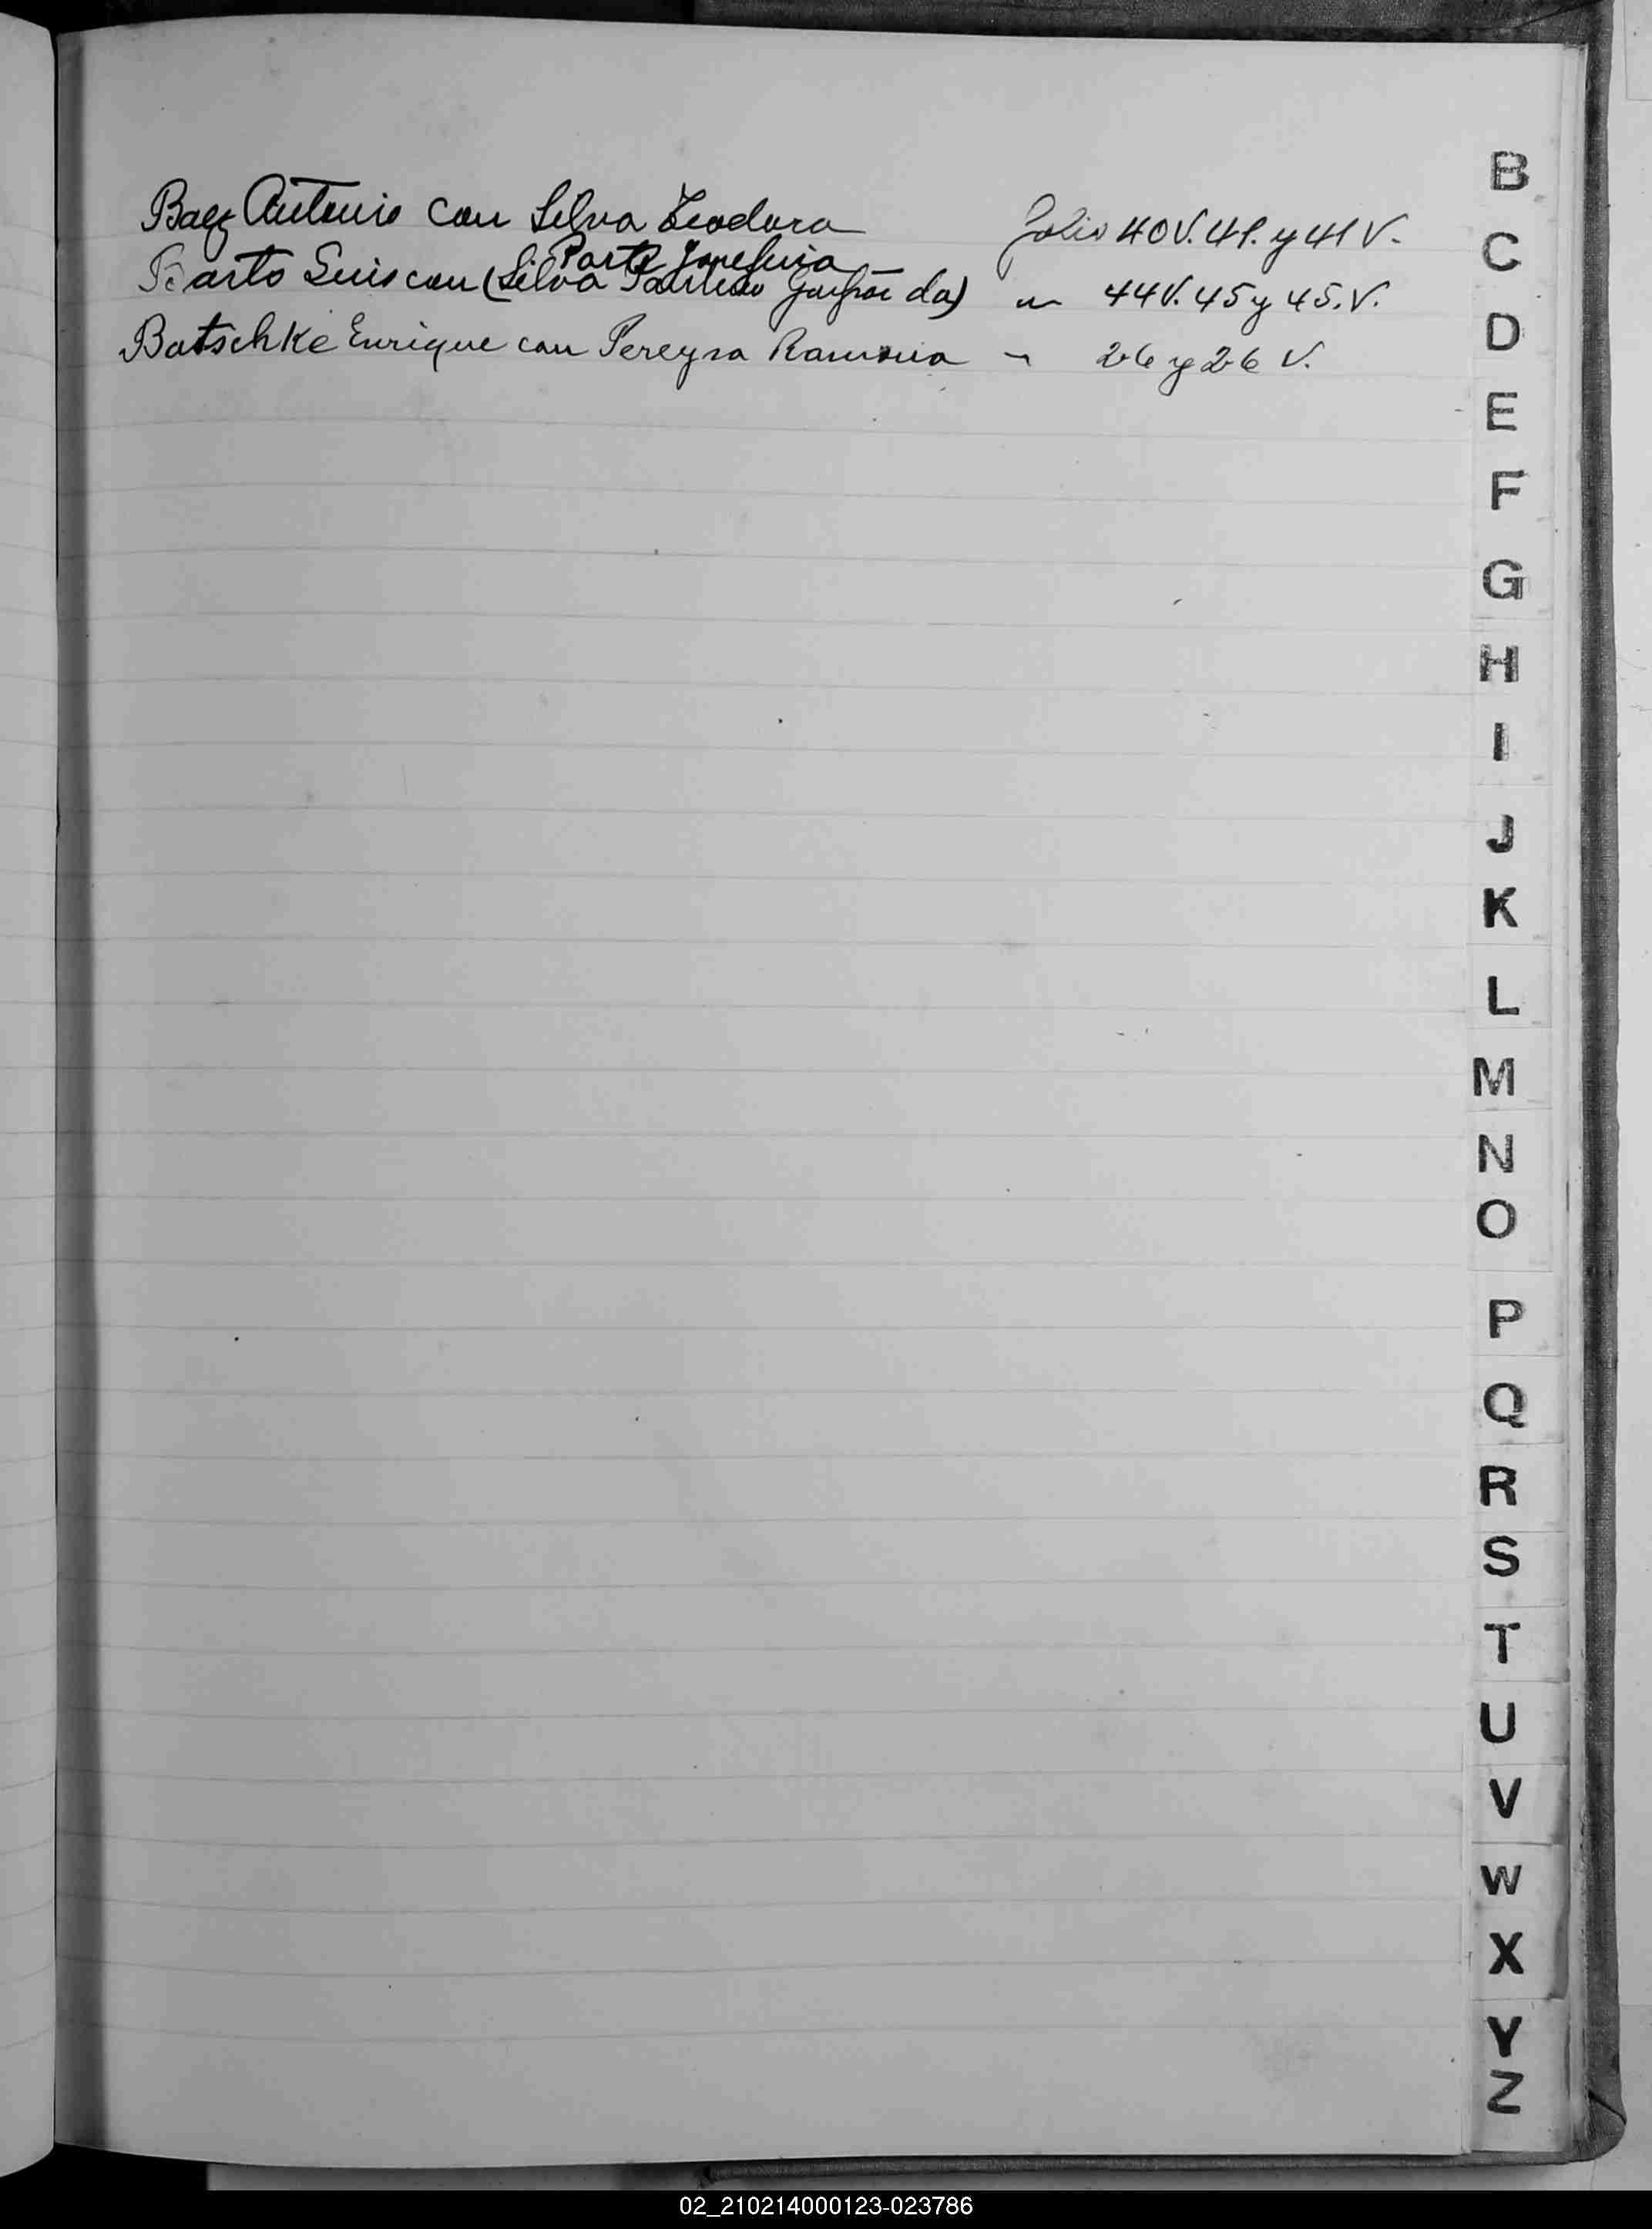 Baez Antonio con Silva Teodora Folio 40V.41.y 41 V.
Porto Josefina
Barto Luis con (Silva Gaspar da) " 44V.45 y 45.V.
Batschke Enrique con Pereyra Ramona " 26 y 26 V.
B
C
D
E
F
G
H
I
J
K
L
M
N
O
P
Q
R
S
T
U
V
W
X
Y
Z
02_210214000123-023786